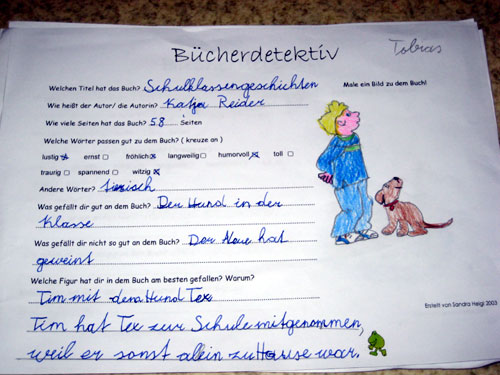 Bücherdetektiv
Tobias
Welchen Titel hat das Buch? Schulklassengeschichten
Male ein Bild zu dem Buch!
Wie heißt der Autor/ die Autorin? Katja Reider
Wie viele Seiten hat das Buch? 58 Seiten
Welche Wörter passen gut zu dem Buch? ( kreuze an )
lustig x ernst fröhlich x langweilig humorvoll x toll
traurig spannend witzig x
Andere Wörter? tierisch
Was gefällt dir gut an dem Buch? Der Hund in der
Klasse
Was gefällt dir nicht so gut an dem Buch? Der Neue hat
geweint
Welche Figur hat dir in dem Buch am besten gefallen? Warum?
Tim mit dem Hund Tex
Tim hat Tex zur Schule mitgenommen,
weil er sonst allein zu Hause war.
Erstellt von Sandra Heigl 2003